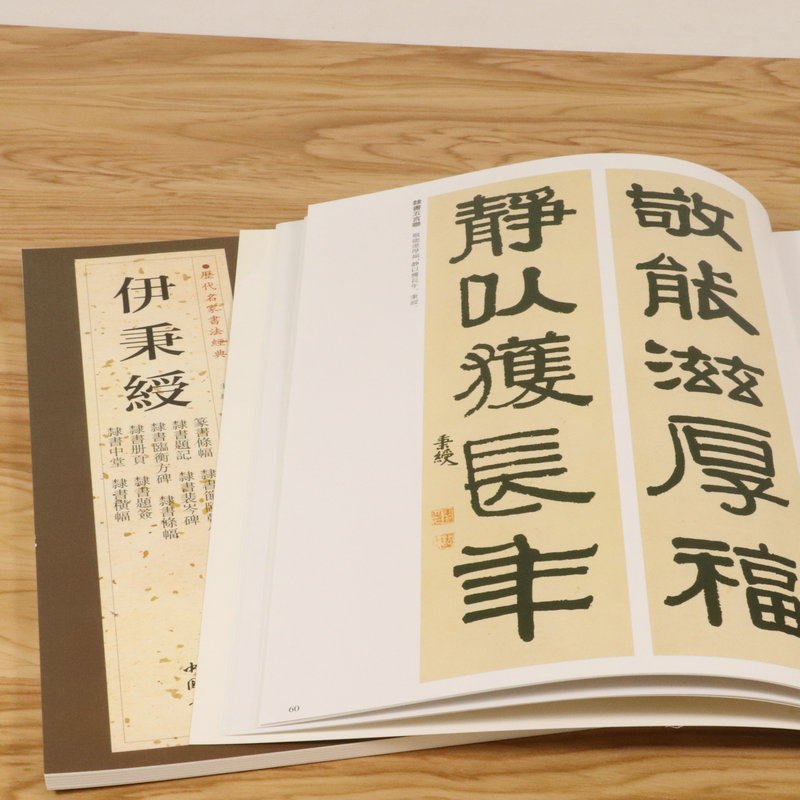 歷代名家書法經典
伊秉綬
篆書條幅
隸書題記 隸書裴岑碑
隸書臨衡方碑 隸書條幅
隸書册頁 隸書題簽
隸書中堂 隸書橫幅
中國
敬能滋厚福
靜以獲長年
秉綬
隸書五言聯 敬能滋厚福,静以獲長年。秉綬。
60